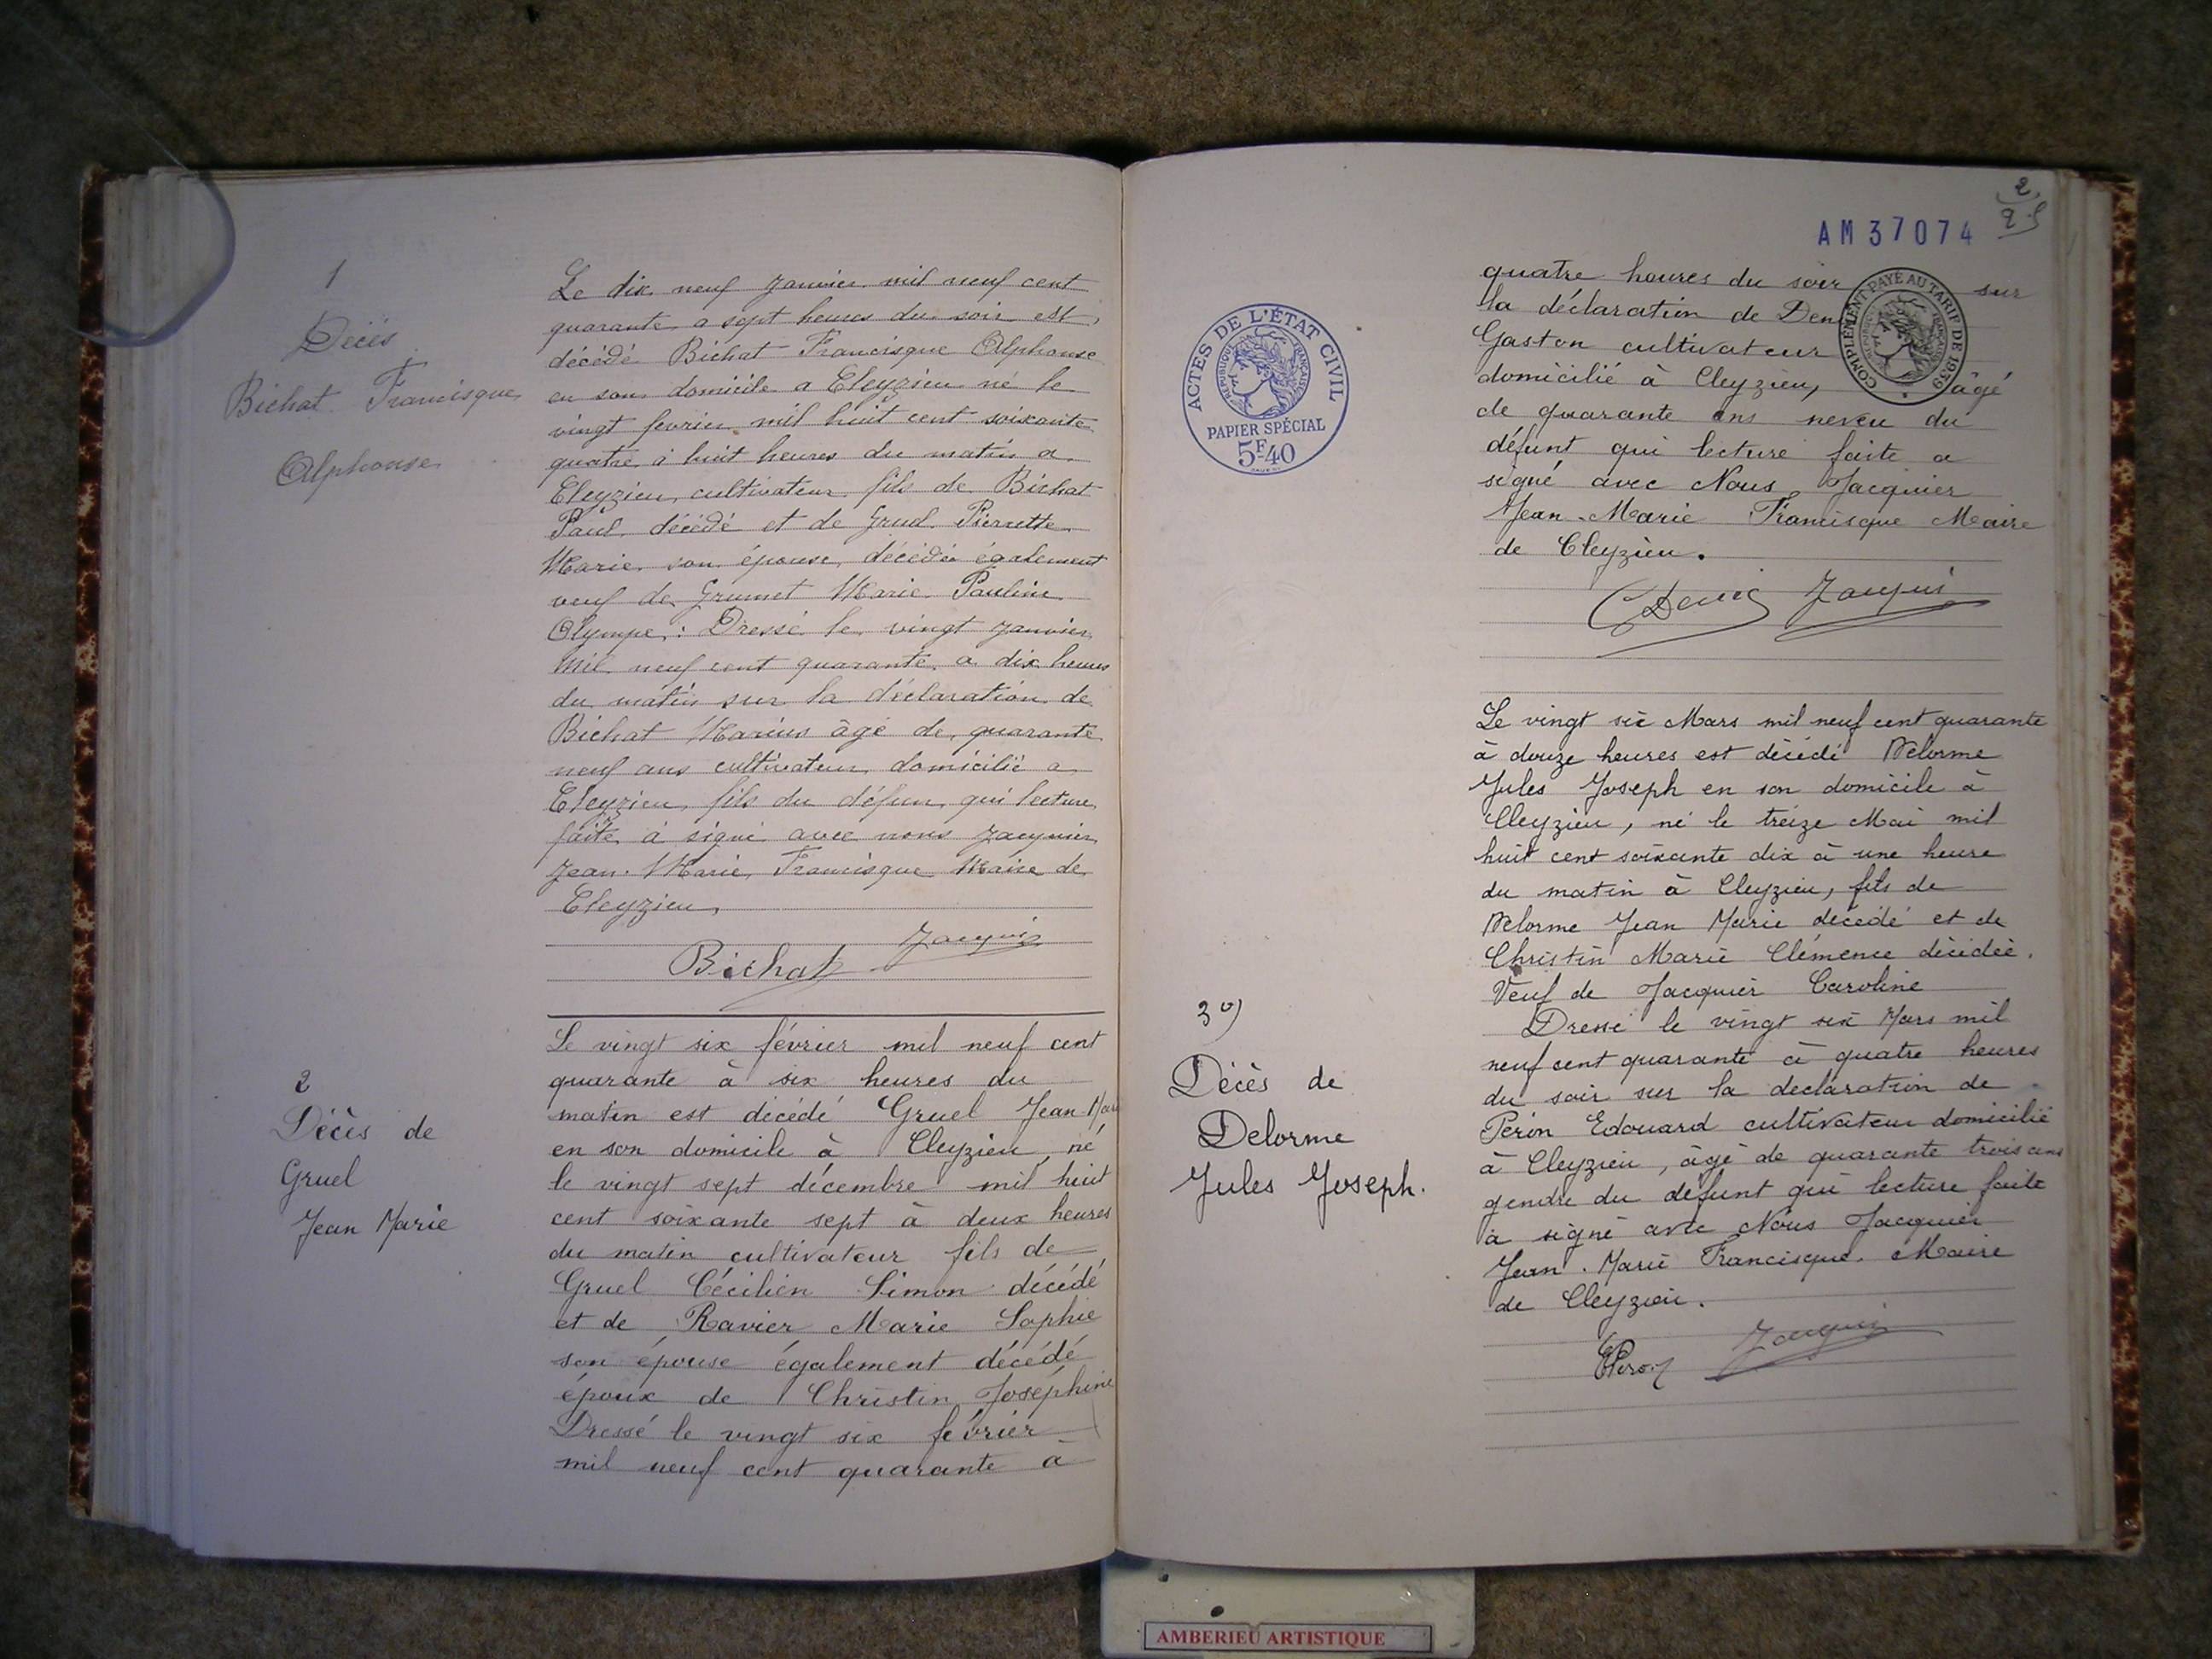 1
Décès
Bichat Francisque
Alphonse
Le dix neuf Janvier mil neuf cent
quarante, a sept heures du soir est,
décédé Bichat Francisque Alphonse
en son domicile a Cleyzieu né le
vingt fevrier mil huit cent soixante
quatre à huit heures du matin a
Cleyzieu, cultivateur, fils de Bichat
Paul décédé et de Gruel Pierrette
Marie son épouse, décédée également
veuf de Grumet Marie Pauline
Olympe : Dressé le vingt Janvier
mil neuf cent quarante a dix heures
du matin sur la déclaration de
Bichat Marius âgé de quarante
neuf ans cultivateur domicilié a
Cleyzieu, fils du défun, qui lecture
faite à signé avec nous Jacquier
Jean-Marie, Francisque Maire de
Cleyzieu,
Bichat
Jacquier
2
Décès de
Gruel
Jean Marie
Le vingt six février mil neuf cent
quarante à six heures du
matin est décédé Gruel Jean-Mar
en son domicile à Cleyzieu, né
le vingt sept décembre mil huit
cent soixante sept à deux heures
du matin cultivateur fils de
Gruel Cécilien Simon décédé
et de Ravier Marie Sophie
son épouse également décédé
époux de Christin Joséphine
Dressé le vingt six février
mil neuf cent quarante à
2
AM37074
ACTES DE L'ÉTAT CIVIL
RÉPUBLIQUE FRANÇAISE
PAPIER SPÉCIAL
5F40
COMPLÉMENT PAYÉ AU TARIF DE 1939
quatre heures du soir sur
la déclaration de Den
Gaston cultivateur
domicilié à Cleyzieu, âgé
de quarante ans neveu du
défunt qui lecture faite a
signé avec Nous Jacquier
Jean-Marie Francisque Maire
de Cleyzieu.
GDenis Jacquier
3º)
Décès de
Delorme
Jules Joseph.
Le vingt six Mars mil neuf cent quarante
à douze heures est décédé Delorme
Jules Joseph en son domicile à
Cleyzieu, né le treize Mai mil
huit cent soixante dix à une heure
du matin à Cleyzieu, fils de
Delorme Jean Marie décédé et de
Christin Marie Clémence décédée.
Veuf de Jacquier Caroline
Dressé le vingt six Mars mil
neuf cent quarante à quatre heures
du soir sur la declaration de
Péron Edouard cultivateur domicilié
à Cleyzieu, âgé de quarante trois ans
gendre du défunt qui lecture faite
à signé avec Nous Jacquier
Jean-Marie Francisque. Maire
de Cleyzieu.
EPeron Jacquier
AMBERIEU ARTISTIQUE